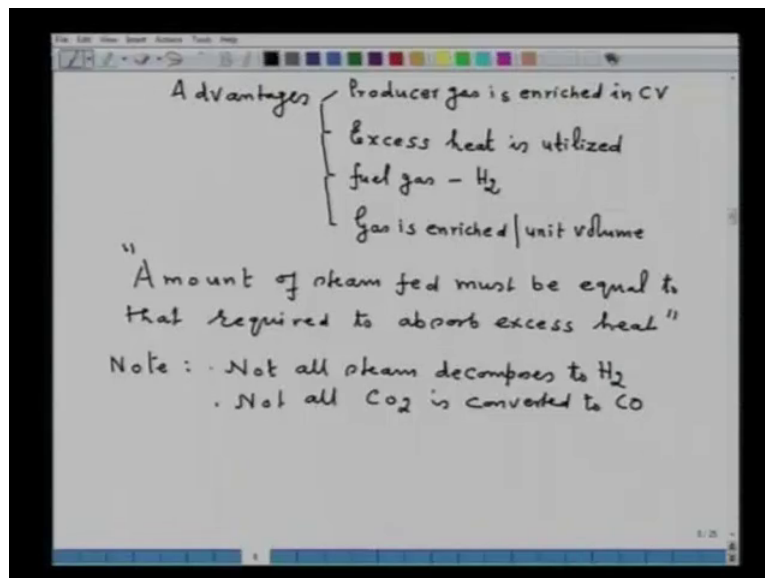 File Edit View Insert Actions Tools Help
Advantages Producer gas is enriched in CV
Excess heat is utilized
fuel gas - H2
Gas is enriched | unit volume
"Amount of steam fed must be equal to
that required to absorb excess heat"
Note : . Not all steam decomposes to H2
. Not all CO2 is converted to CO